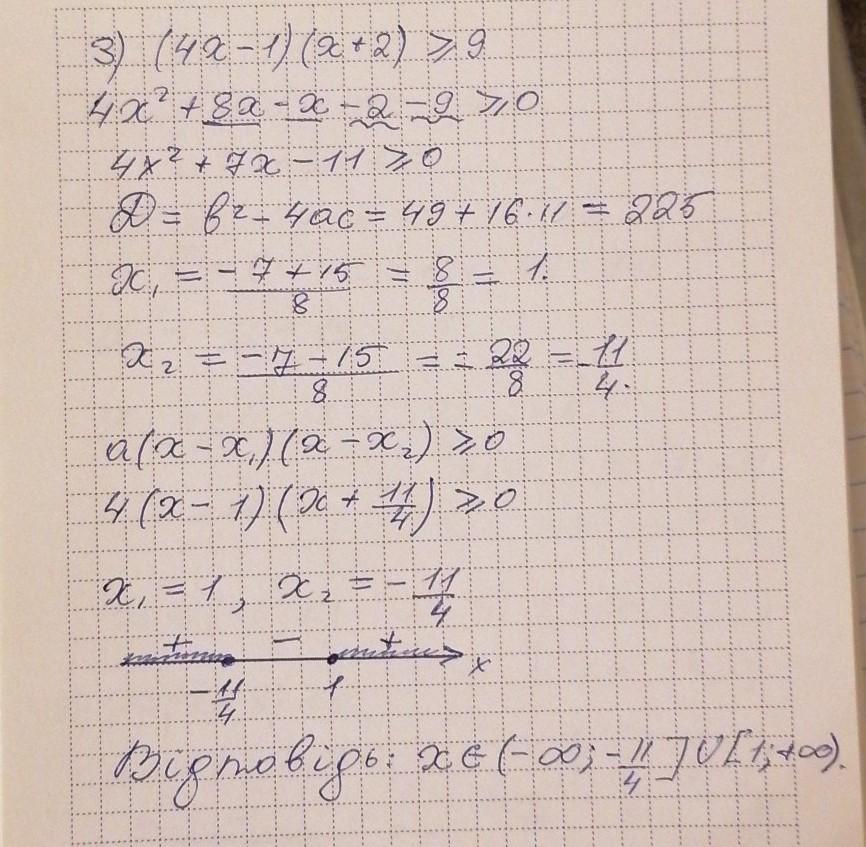 3) (4x-1)(x+2) ⩾ 9
4x² + 8x - x - 2 - 9 ⩾ 0
4x² + 7x - 11 ⩾ 0
D = b² - 4ac = 49 + 16·11 = 225
x₁ = (-7+15)/8 = 8/8 = 1.
x₂ = (-7-15)/8 = -22/8 = -11/4.
a(x-x₁)(x-x₂) ⩾ 0
4(x-1)(x+11/4) ⩾ 0
x₁ = 1, x₂ = -11/4
+ - +
-11/4 1 x
Відповідь: x∈(-∞; -11/4]∪[1;+∞).